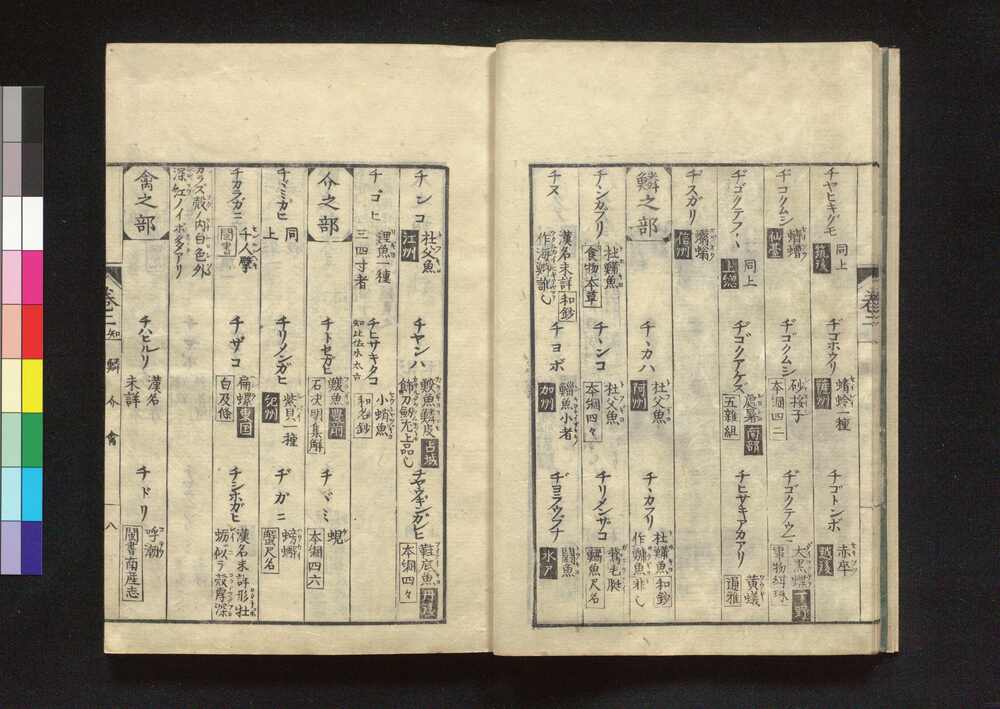 チヤヒキグモ 同上 筑後
ヂコホウリ 蜻蛉一種
チゴトンボ 赤卒 越後
ヂコクムシ 蠐螬 仙基
ヂゴクムシ 砂挼子 本綱四二
ヂゴクテウマ 大黒蝶 下野 事物紺珠
ヂゴクテフヽ 同上 上総
ヂゴクアケズ 南部 五雜組
チヒサキアカアリ 黄蟻 通雅
ヂスガリ 蠮螉 信州
鱗之部
チヽカハ 杜父魚 阿州
チヽカフリ 杜父魚 和鈔
チンカフリ 杜父魚 食物本草
チヽンコ 杜父魚 本綱四々
チリメンザコ 鵞毛脡 魚尺名
チヌ 漢名未詳 和鈔
チヨボ 魚小者 加州
ヂヨラウフナ 鬪魚 水戸
チンコ 杜父魚 江州
チヤンハ 占城 鱗皮 上品也
チヤウキンガヒ 鞋底魚 丹後 本綱四々
チゴヒ 鯉魚一種 三四寸者
チヒサキタコ 小蛸魚 知比佐木太古 和名鈔
介之部
チトセガヒ 鰒魚 豊前 石决明集解
チヾミ 蜆 本綱四六
チヾミガヒ 同上
チリメンガヒ 紫貝一種 紀州
ヂガニ 蟛蜞 蟹尺名
チカラガニ 千人擘 閩書
チザコ 扁螺 東国 白及條
チシホガヒ 漢名未詳形牡蛎似テ殻厚深
カラズ殻ノ内白色外深紅ノイボ多アリ
禽之部
チハヒルリ 漢名未詳
チドリ 呼潮 閩書南産志
巻二
巻二 知 鱗 介 禽 八